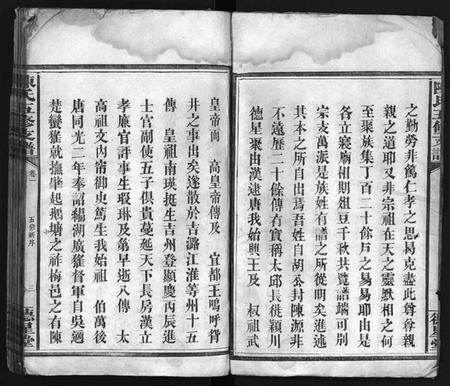 之勤勞非篤仁孝之思曷克盡此眷眷親
親之道耶又非宗祖在天之靈默相之何
至聚族集丁百二十餘戶之易易耶由是
各立寢廟相期俎豆千秋共覽譜端可別
宗支萬派是族姓有譜之所從明矣進述
其本之所自出焉吾姓自胡公封陳源非
不遠歷二十餘傳有實稱太邱長徙潁川
德星聚由漢逮唐我始興王及 叔祖武
皇帝而 高皇帝傳及 宜都王鳴呼眢
井之事出矣遂散於吉潞江淮等州十五
傳 皇祖南瑛挺生吉州登顯慶丙辰進
士官副使五子俱貴蔓延天下長房漢立
孝廉官評事生瑕琳及翁早逝八傳 太
高祖文內甯御史篤生我始祖 伯萬後
唐同光二年奉詔緝湖廣獲督軍自吳適
楚蠻獠就撫肇起鵝塘之祚梅邑之有陳
陳氏五修支譜
卷一
五修新序
三
德星堂